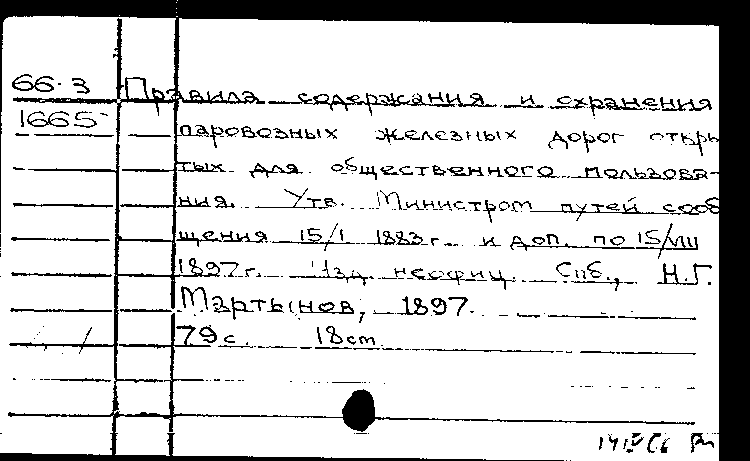 66.3 Правила содержания и охранения
1665 паровозных железных дорог откры
тых для общественного пользова-
ния. Утв. Министром путей сооб
щения 15/I 1883г. и доп. по 15/VIII
1897г. Изд. неофиц. Спб., Н.Г.
Мартынов, 1897.
79с. 18cm